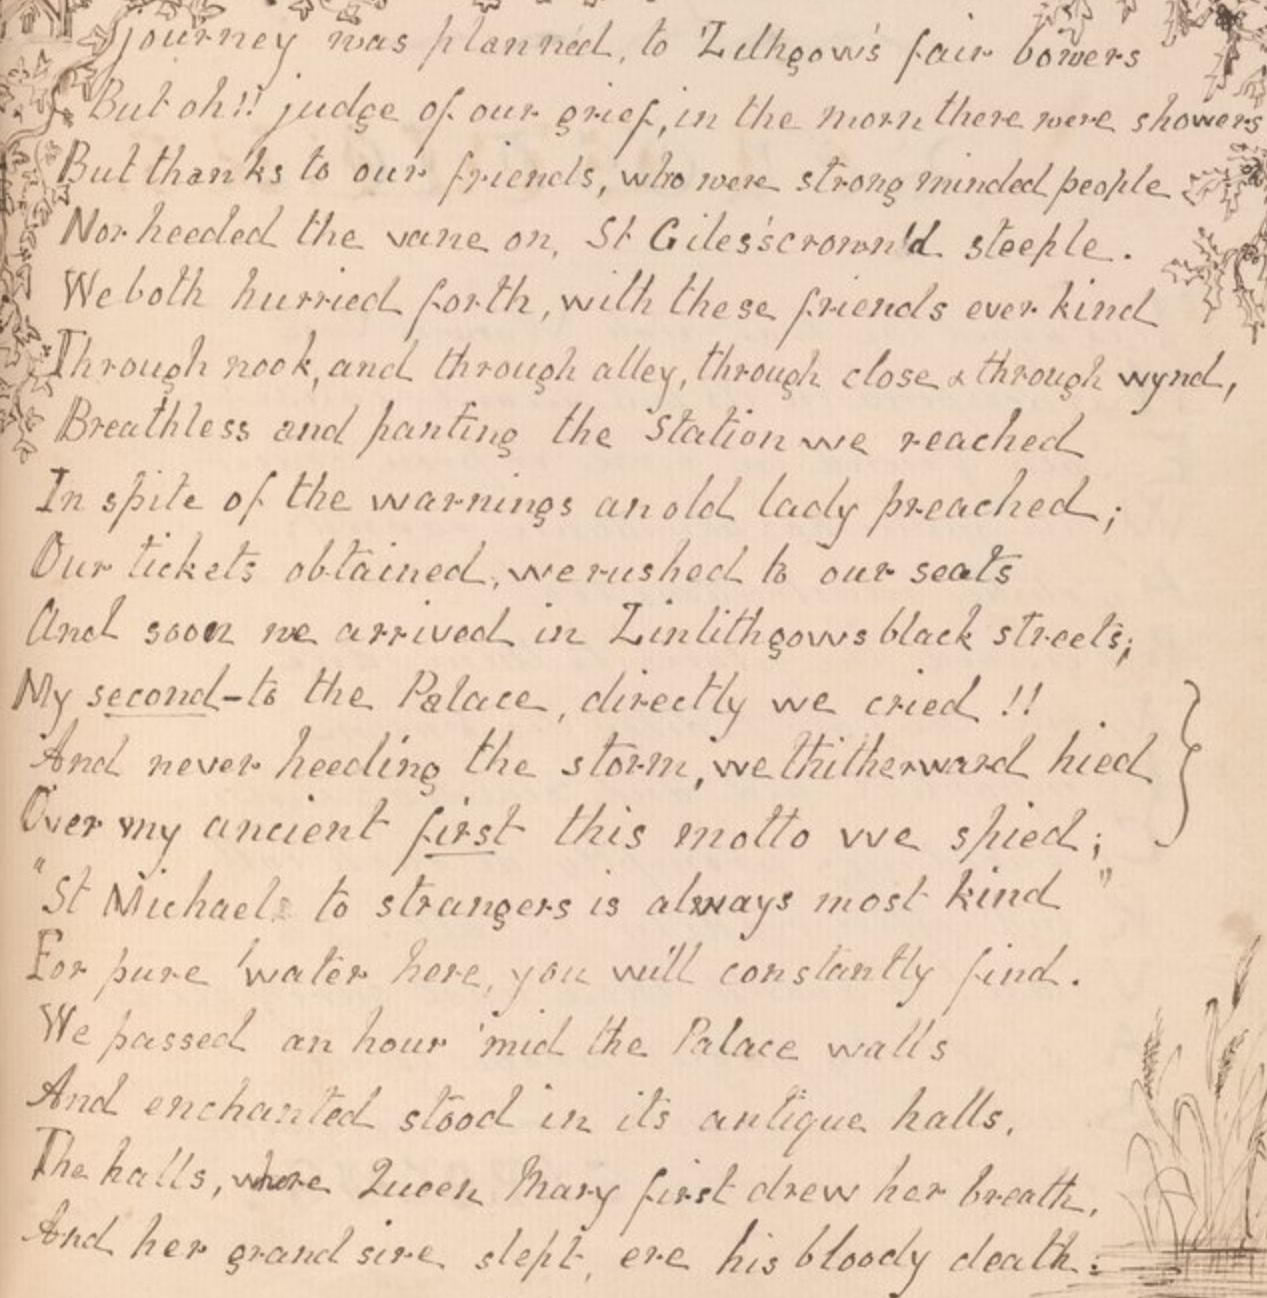 journey was plann'd, to Lithgow's fair bowers
But oh!! judge of our grief, in the morn there were showers
But thanks to our friends, who were strong minded people
Nor heeded the vane on, St Giles's crown'd steeple.
We both hurried forth, with these friends ever kind
Through nook, and through alley, through close & through wynd,
Breathless and panting the Station we reached
In spite of the warnings an old lady preached;
Our tickets obtained, we rushed to our seats
And soon we arrived in Linlithgows black streets;
My second - to the Palace, directly we cried!!
And never heeding the storm, we thitherward hied
Over my ancient first this motto we spied;
"St Michael to strangers is always most kind"
For pure water here, you will constantly find.
We passed an hour 'mid the Palace walls
And enchanted stood in its antique halls,
The halls, where Queen Mary first drew her breath,
And her grandsire slept, ere his bloody death: